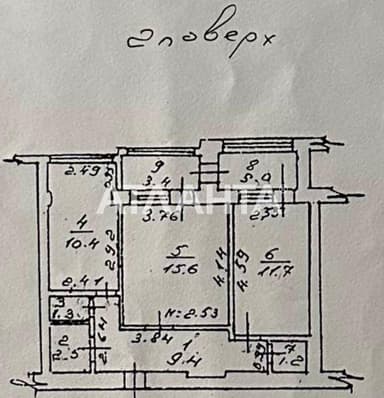 2 поверх
2.49
9
3.4
8
5.0
АТЛАНТА
3.76
2.55
4
10.4
2.92
5
15.6
4.14
4.59
6
11.7
2.41
3
1.3
H=2.53
2.64
3.84
1
9.4
2
2.5
7
1.2